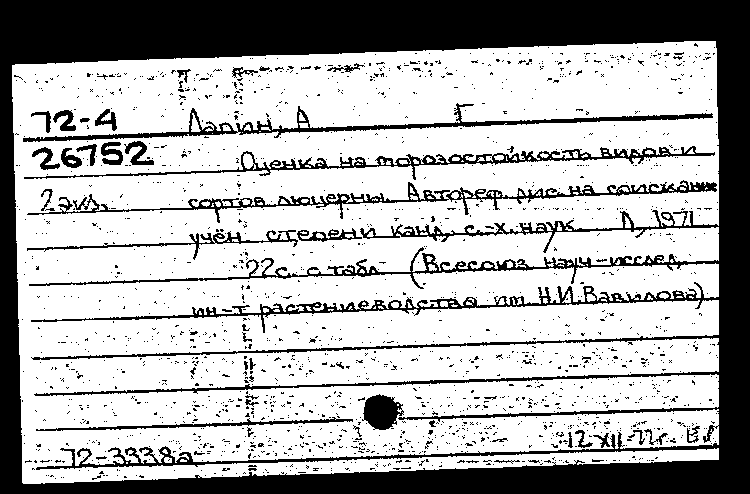 72-4 Лапин, А Г
26752 Оценка на морозостойкость видов и
2 экз. сортов люцерны. Автореф. дис. на соискание
учён. степени канд. с.-х. наук. Л, 1971
22с. с табл. (Всесоюз. науч-исслед.
ин-т растениеводства им. Н.И. Вавилова)
12 XII-72г.
72-3938а